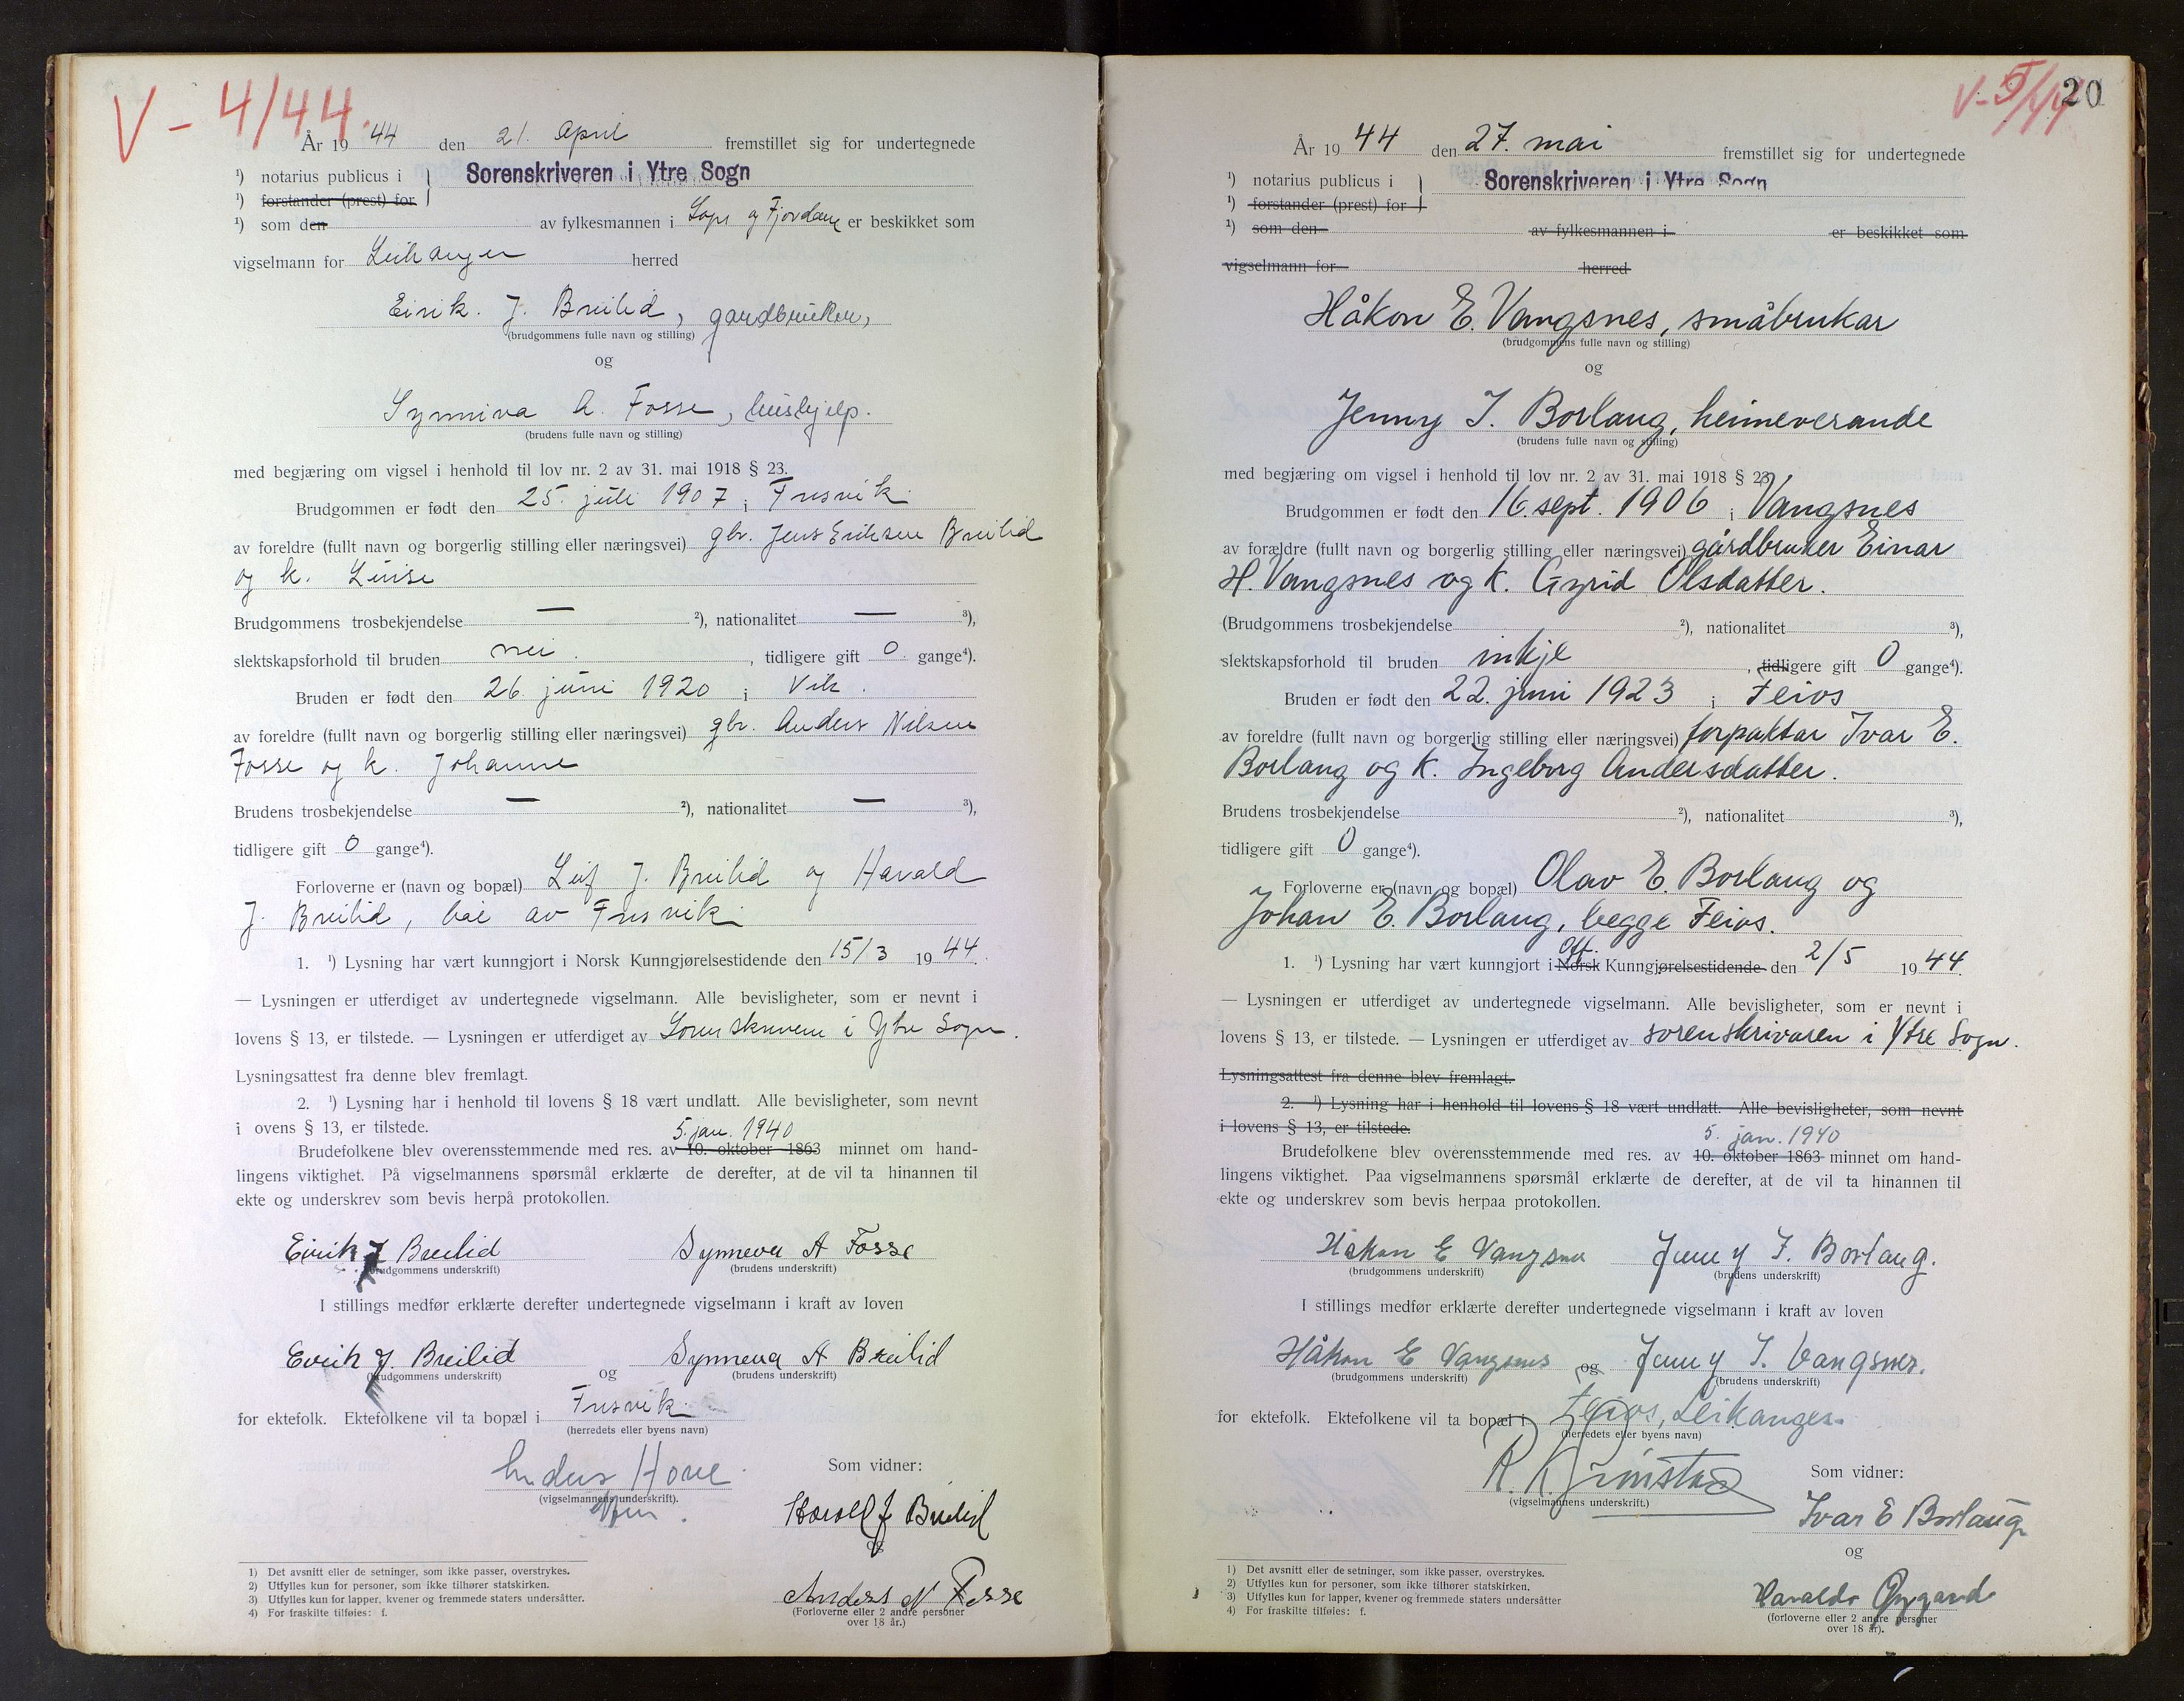 V - 4/44.
År 1944 den 21. April fremstillet sig for undertegnede
¹) notarius publicus i } Sorenskriveren i Ytre Sogn
¹) forstander (prest) for
¹) som den av fylkesmannen i Sogn og Fjordane er beskikket som
vigselmann for Leikanger herred
Eirik. J. Breilid, gardbruker,
(brudgommens fulle navn og stilling)
og
Synneva A. Fosse, hushjelp.
(brudens fulle navn og stilling)
med begjæring om vigsel i henhold til lov nr. 2 av 31. mai 1918 § 23.
Brudgommen er født den 25. juli 1907 i Fresvik
av foreldre (fullt navn og borgerlig stilling eller næringsvei) gbr. Jens Eriksen Breilid
og k. Luise
Brudgommens trosbekjendelse — ²), nationalitet — ³),
slektskapsforhold til bruden nei. , tidligere gift 0 gange⁴).
Bruden er født den 26. juni 1920 i Vik.
av foreldre (fullt navn og borgerlig stilling eller næringsvei) gbr. Anders Nilsen
Fosse og k. Johanne
Brudens trosbekjendelse — ²), nationalitet — ³),
tidligere gift 0 gange⁴).
Forloverne er (navn og bopæl) Leif J. Breilid og Harald
J. Breilid, båe av Fresvik
1. ¹) Lysning har vært kunngjort i Norsk Kunngjørelsestidende den 15/3 1944.
— Lysningen er utferdiget av undertegnede vigselmann. Alle bevisligheter, som er nevnt i
lovens § 13, er tilstede. — Lysningen er utferdiget av Sorenskriveren i Ytre Sogn.
Lysningsattest fra denne blev fremlagt.
2. ¹) Lysning har i henhold til lovens § 18 vært undlatt. Alle bevisligheter, som nevnt
i ovens § 13, er tilstede.
5. jan. 1940
Brudefolkene blev overensstemmende med res. av 10. oktober 1863 minnet om hand-
lingens viktighet. På vigselmannens spørsmål erklærte de derefter, at de vil ta hinannen til
ekte og underskrev som bevis herpå protokollen.
Eirik J Breilid Synneva A Fosse
(brudgommens underskrift) (brudens underskrift)
I stillings medfør erklærte derefter undertegnede vigselmann i kraft av loven
Eirik J. Breilid og Synneva A Breilid
(brudgommens underskrift) (brudens underskrift)
for ektefolk. Ektefolkene vil ta bopæl i Fresvik
(herredets eller byens navn)
Anders Hove Som vidner:
(vigselmannens underskrift).
Harald J Breilid
og
Anders N Fosse
(Forloverne eller 2 andre personer
over 18 år.)
1) Det avsnitt eller de setninger, som ikke passer, overstrykes.
2) Utfylles kun for personer, som ikke tilhører statskirken.
3) Utfylles kun for lapper, kvener og fremmede staters undersåtter.
4) For fraskilte tilføies: f.
V-5/44
20
År 1944 den 27. mai fremstillet sig for undertegnede
¹) notarius publicus i } Sorenskriveren i Ytre Sogn
¹) forstander (prest) for
¹) som den av fylkesmannen i er beskikket som
vigselmann for herred
Håkon E. Vangsnes, småbrukar
(brudgommens fulle navn og stilling)
og
Jenny I. Borlaug, heimeverande
(brudens fulle navn og stilling)
med begjæring om vigsel i henhold til lov nr. 2 av 31. mai 1918 § 23.
Brudgommen er født den 16. sept. 1906 i Vangsnes
av forældre (fullt navn og borgerlig stilling eller næringsvei) gårdbruker Einar
H. Vangsnes og k. Gyrid Olsdatter.
(Brudgommens trosbekjendelse ²), nationalitet ³),
slektskapsforhold til bruden inkje , tidligere gift 0 gange⁴).
Bruden er født den 22. juni 1923 i Feios
av foreldre (fullt navn og borgerlig stilling eller næringsvei) forpaktar Ivar E.
Borlaug og k. Ingeborg Andersdatter.
Brudens trosbekjendelse ²), nationalitet ³),
tidligere gift 0 gange⁴).
Forloverne er (navn og bopæl) Olav E. Borlaug og
Johan E. Borlaug, begge Feios.
Off.
1. ¹) Lysning har vært kunngjort i Norsk Kunngjørelsestidende den 2/5 1944.
— Lysningen er utferdiget av undertegnede vigselmann. Alle bevisligheter, som er nevnt i
lovens § 13, er tilstede. — Lysningen er utferdiget av sorenskrivaren i Ytre Sogn.
Lysningsattest fra denne blev fremlagt.
2. ¹) Lysning har i henhold til lovens § 18 vært undlatt. Alle bevisligheter, som nevnt
i lovens § 13, er tilstede.
5. jan. 1940
Brudefolkene blev overensstemmende med res. av 10. oktober 1863 minnet om hand-
lingens viktighet. Paa vigselmannens spørsmål erklærte de derefter, at de vil ta hinannen til
ekte og underskrev som bevis herpaa protokollen.
Håkon E Vangsnes Jenny I. Borlaug.
(brudgommens underskrift) (brudens underskrift)
I stillings medfør erklærte derefter undertegnede vigselmann i kraft av loven
Håkon E Vangsnes og Jenny I. Vangsnes.
(brudgommens underskrift) (brudens underskrift)
for ektefolk. Ektefolkene vil ta bopæl i Feios, Leikanger.
(herredets eller byens navn)
R. K. Grimstad Som vidner:
(vigselmannens underskrift.)
Ivar E Borlaug
og
Haralds Øygard
(forloverne eller 2 andre personer
over 18 år).
1) Det avsnitt eller de setninger, som ikke passer, overstrykes.
2) Utfylles kun for personer, som ikke tilhører statskirken.
3) Utfylles kun for lapper, kvener og fremmede staters undersåtter
4) For fraskilte tilføies: f.